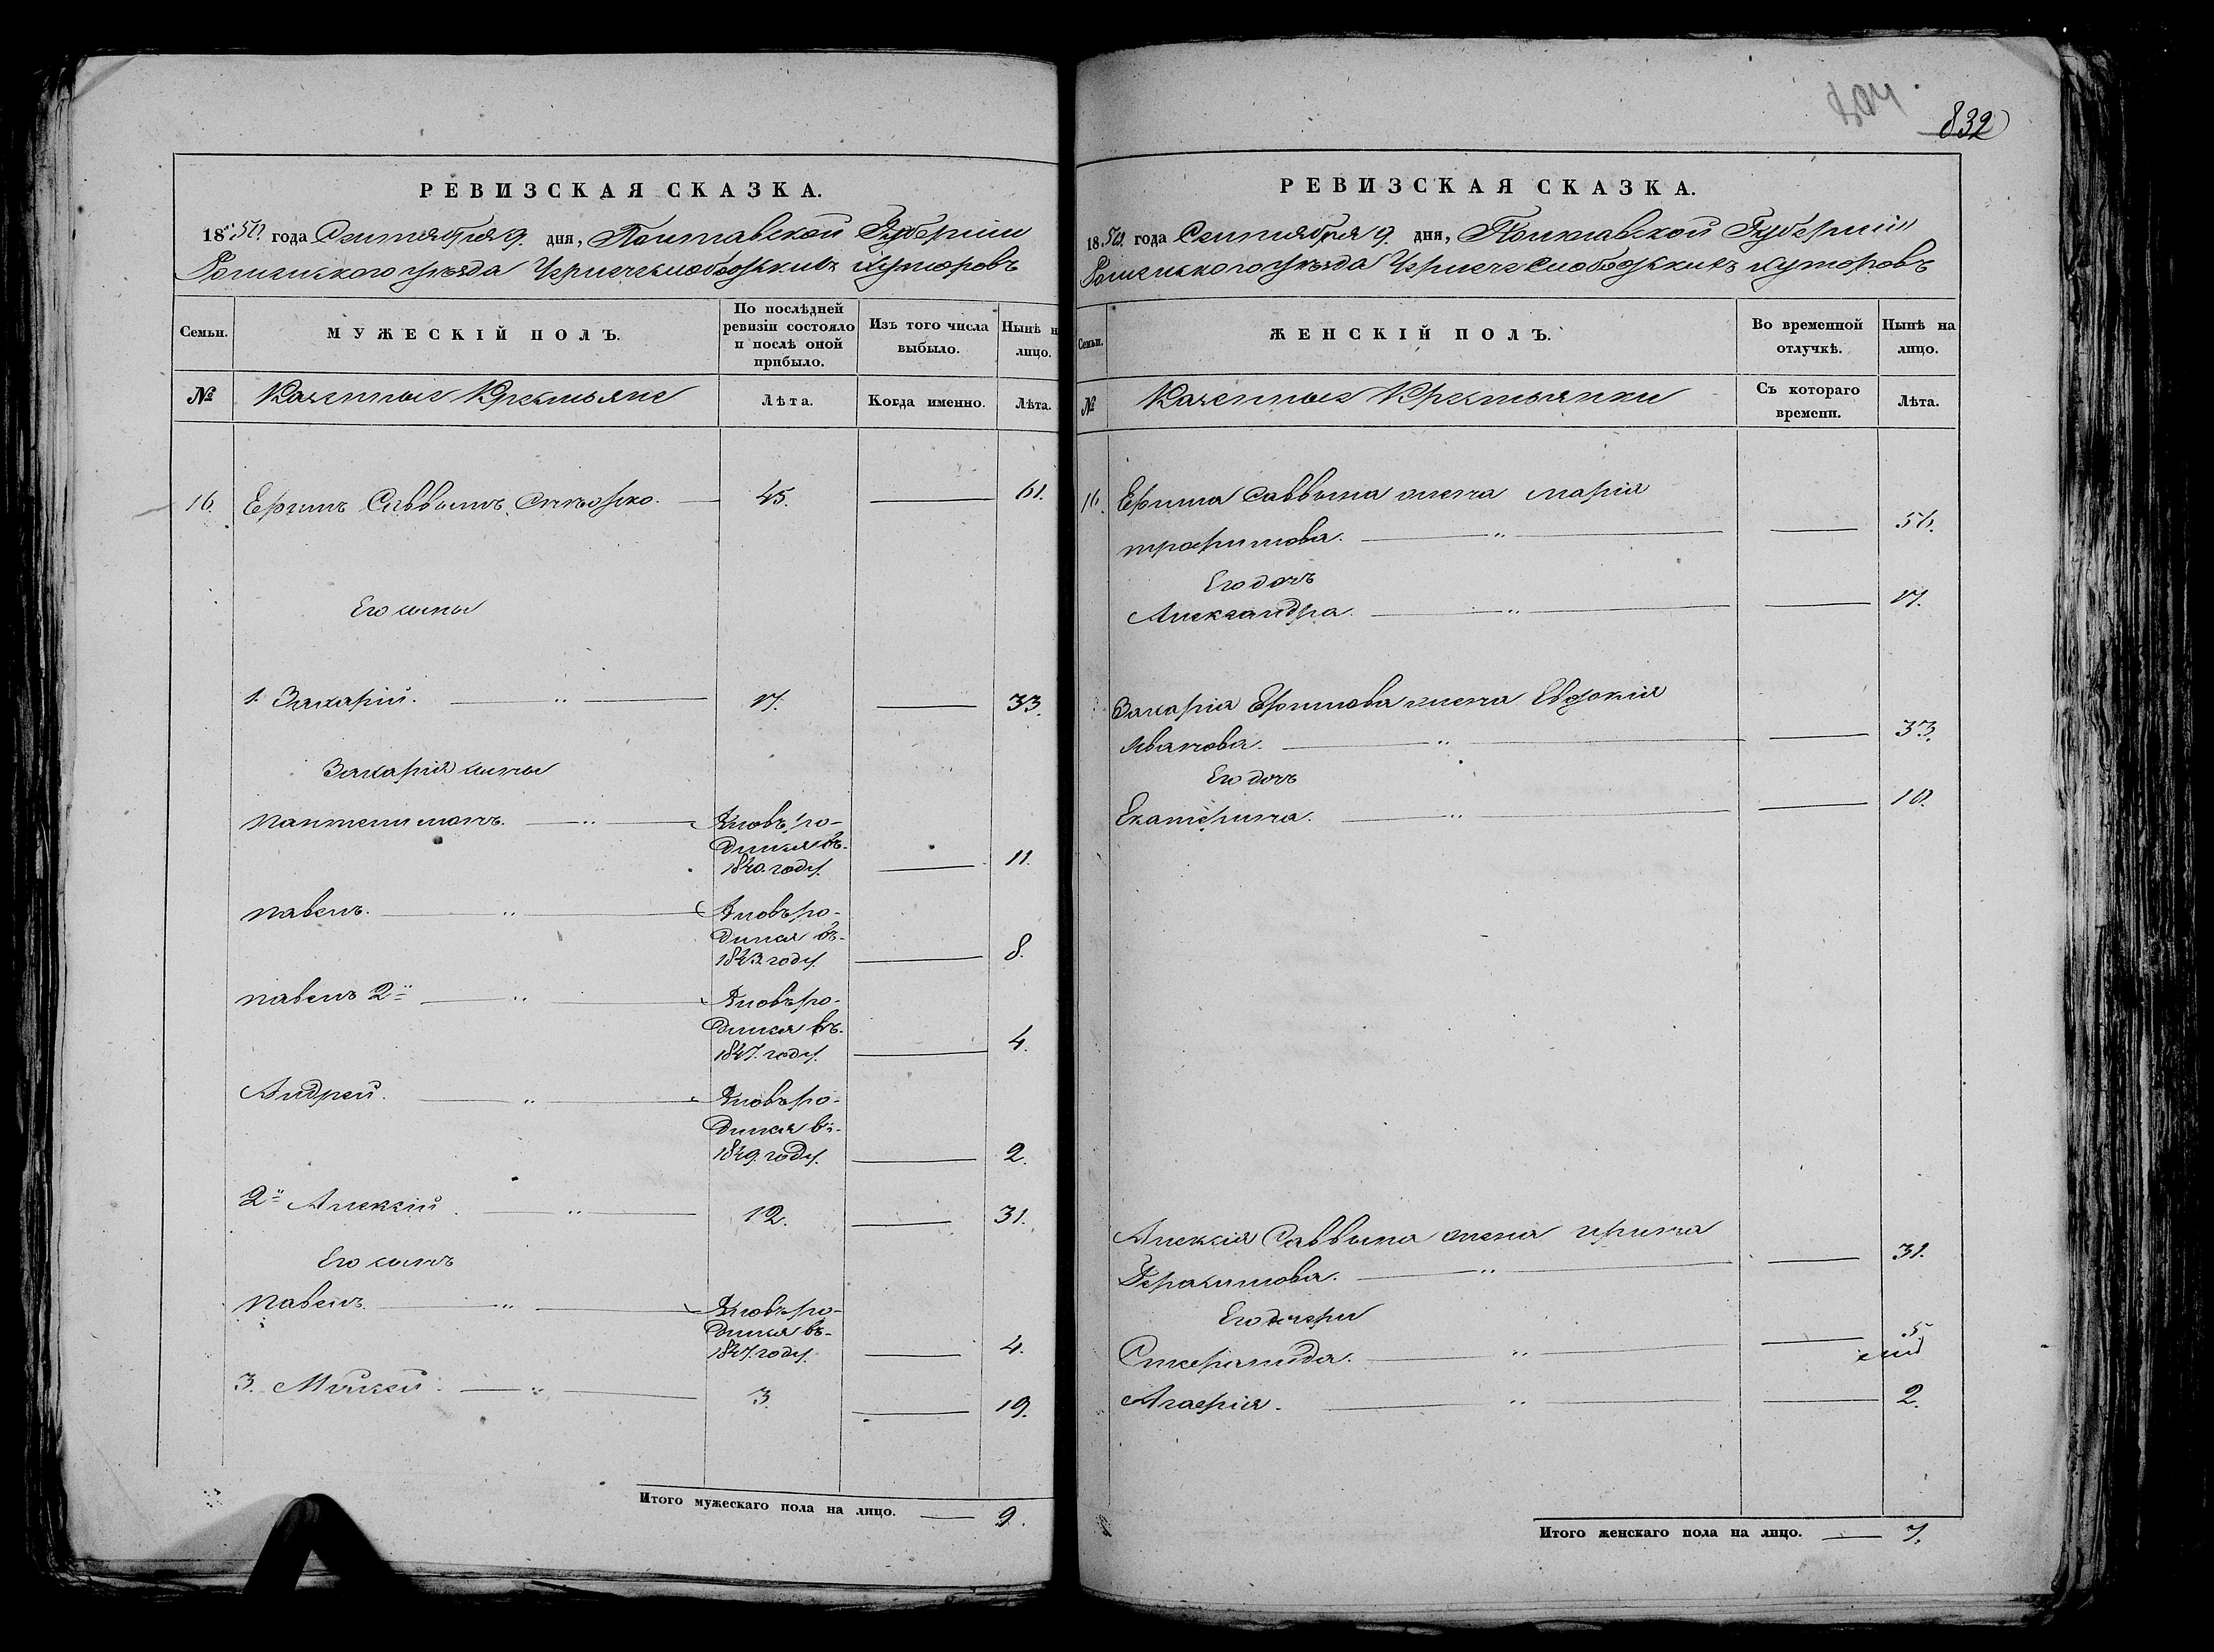 804
832
РЕВИЗСКАЯ СКАЗКА.
1850. года Сентября 9. дня, Полтавской Губерніи
Роменского уѣзда Чернечеслободскихъ хуторовъ
Семьи.
МУЖЕСКІЙ ПОЛЪ.
По послѣдней ревизіи состояло и послѣ оной прибыло.
Изъ того числа выбыло.
Нынѣ на лицо.
№
Казенные Крестьяне
Лѣта.
Когда именно.
Лѣта.
16. Ефимъ Саввинъ 45. 61.
Его сыны
1. Захарій. 17. 33.
Захарія сыны
Пантелимонъ. Вновь ро-
дился въ-
1840. году. 11.
Павелъ. Вновь ро-
дился въ-
1843. году. 8.
Павелъ 2й Вновь ро-
дился въ-
1847. году. 4.
Андрей. Вновь ро-
дился въ-
1849. году. 2.
2й Алексій 12. 31.
Его сынъ
Павелъ. Вновь ро-
дился въ-
1847. году. 4.
3. Мойсей. 3. 19.
Итого мужескаго пола на лицо. 9.
РЕВИЗСКАЯ СКАЗКА.
1850. года Сентября 9. дня, Полтавской Губерніи
Роменского уѣзда Чернечеслободскихъ хуторовъ
Семьи.
ЖЕНСКІЙ ПОЛЪ.
Во временной отлучкѣ.
Нынѣ на лицо.
№
Казенные Крестьянки
Съ котораго времени.
Лѣта.
16. Ефима Саввина жена Марія
Трофимова. 56.
Его дочь
Александра. 17.
Захарія Ефимова жена Евдокія
Иванова. 33.
Его дочь
Екатерина. 10.
Алексія Саввина жена Ирина
Герасимова. 31.
Его дочери
Степанида. 5
Агафія. 2.
Итого женскаго пола на лицо. 7.